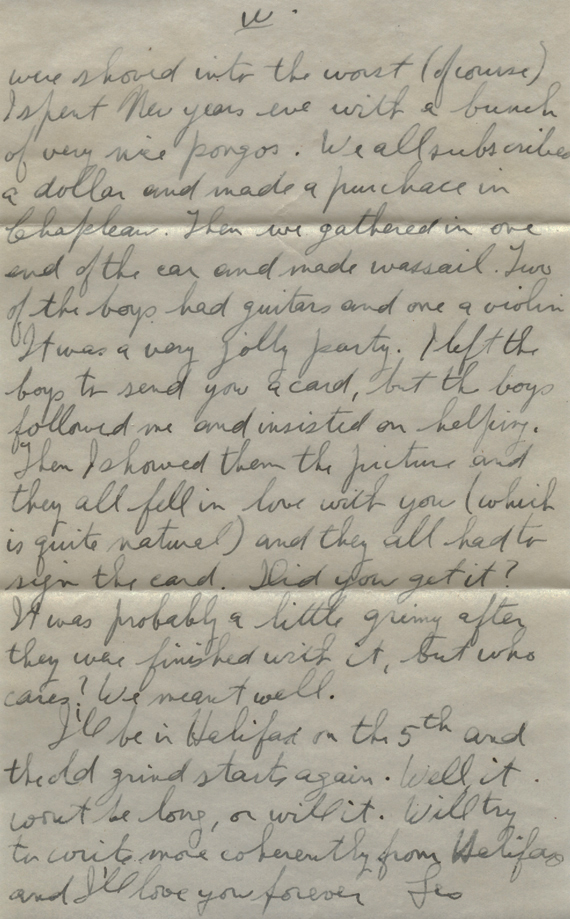 IV.
were shoved into the worst (of course)
I spent New years eve with a bunch
of very nice pongos. We all subscribed
a dollar and made a purchace in
Chapleau. Then we gathered in one
end of the car and made wassail. Two
of the boys had guitars and one a violin
It was a very jolly party. I left the
boys to send you a card, but th boys
followed me and insisted on helping.
Then I showed them the picture and
they all fell in love with you (which
is quite natural) and they all had to
sign the card. Did you get it?
It was probably a little grimy after
they were finished with it, but who
cares? We meant well.
I'll be in Halifax on the 5th and
the old grind starts again. Well it
won't be long, or will it. Will try
to write more coherently from Halifax
and I'll love you forever Les